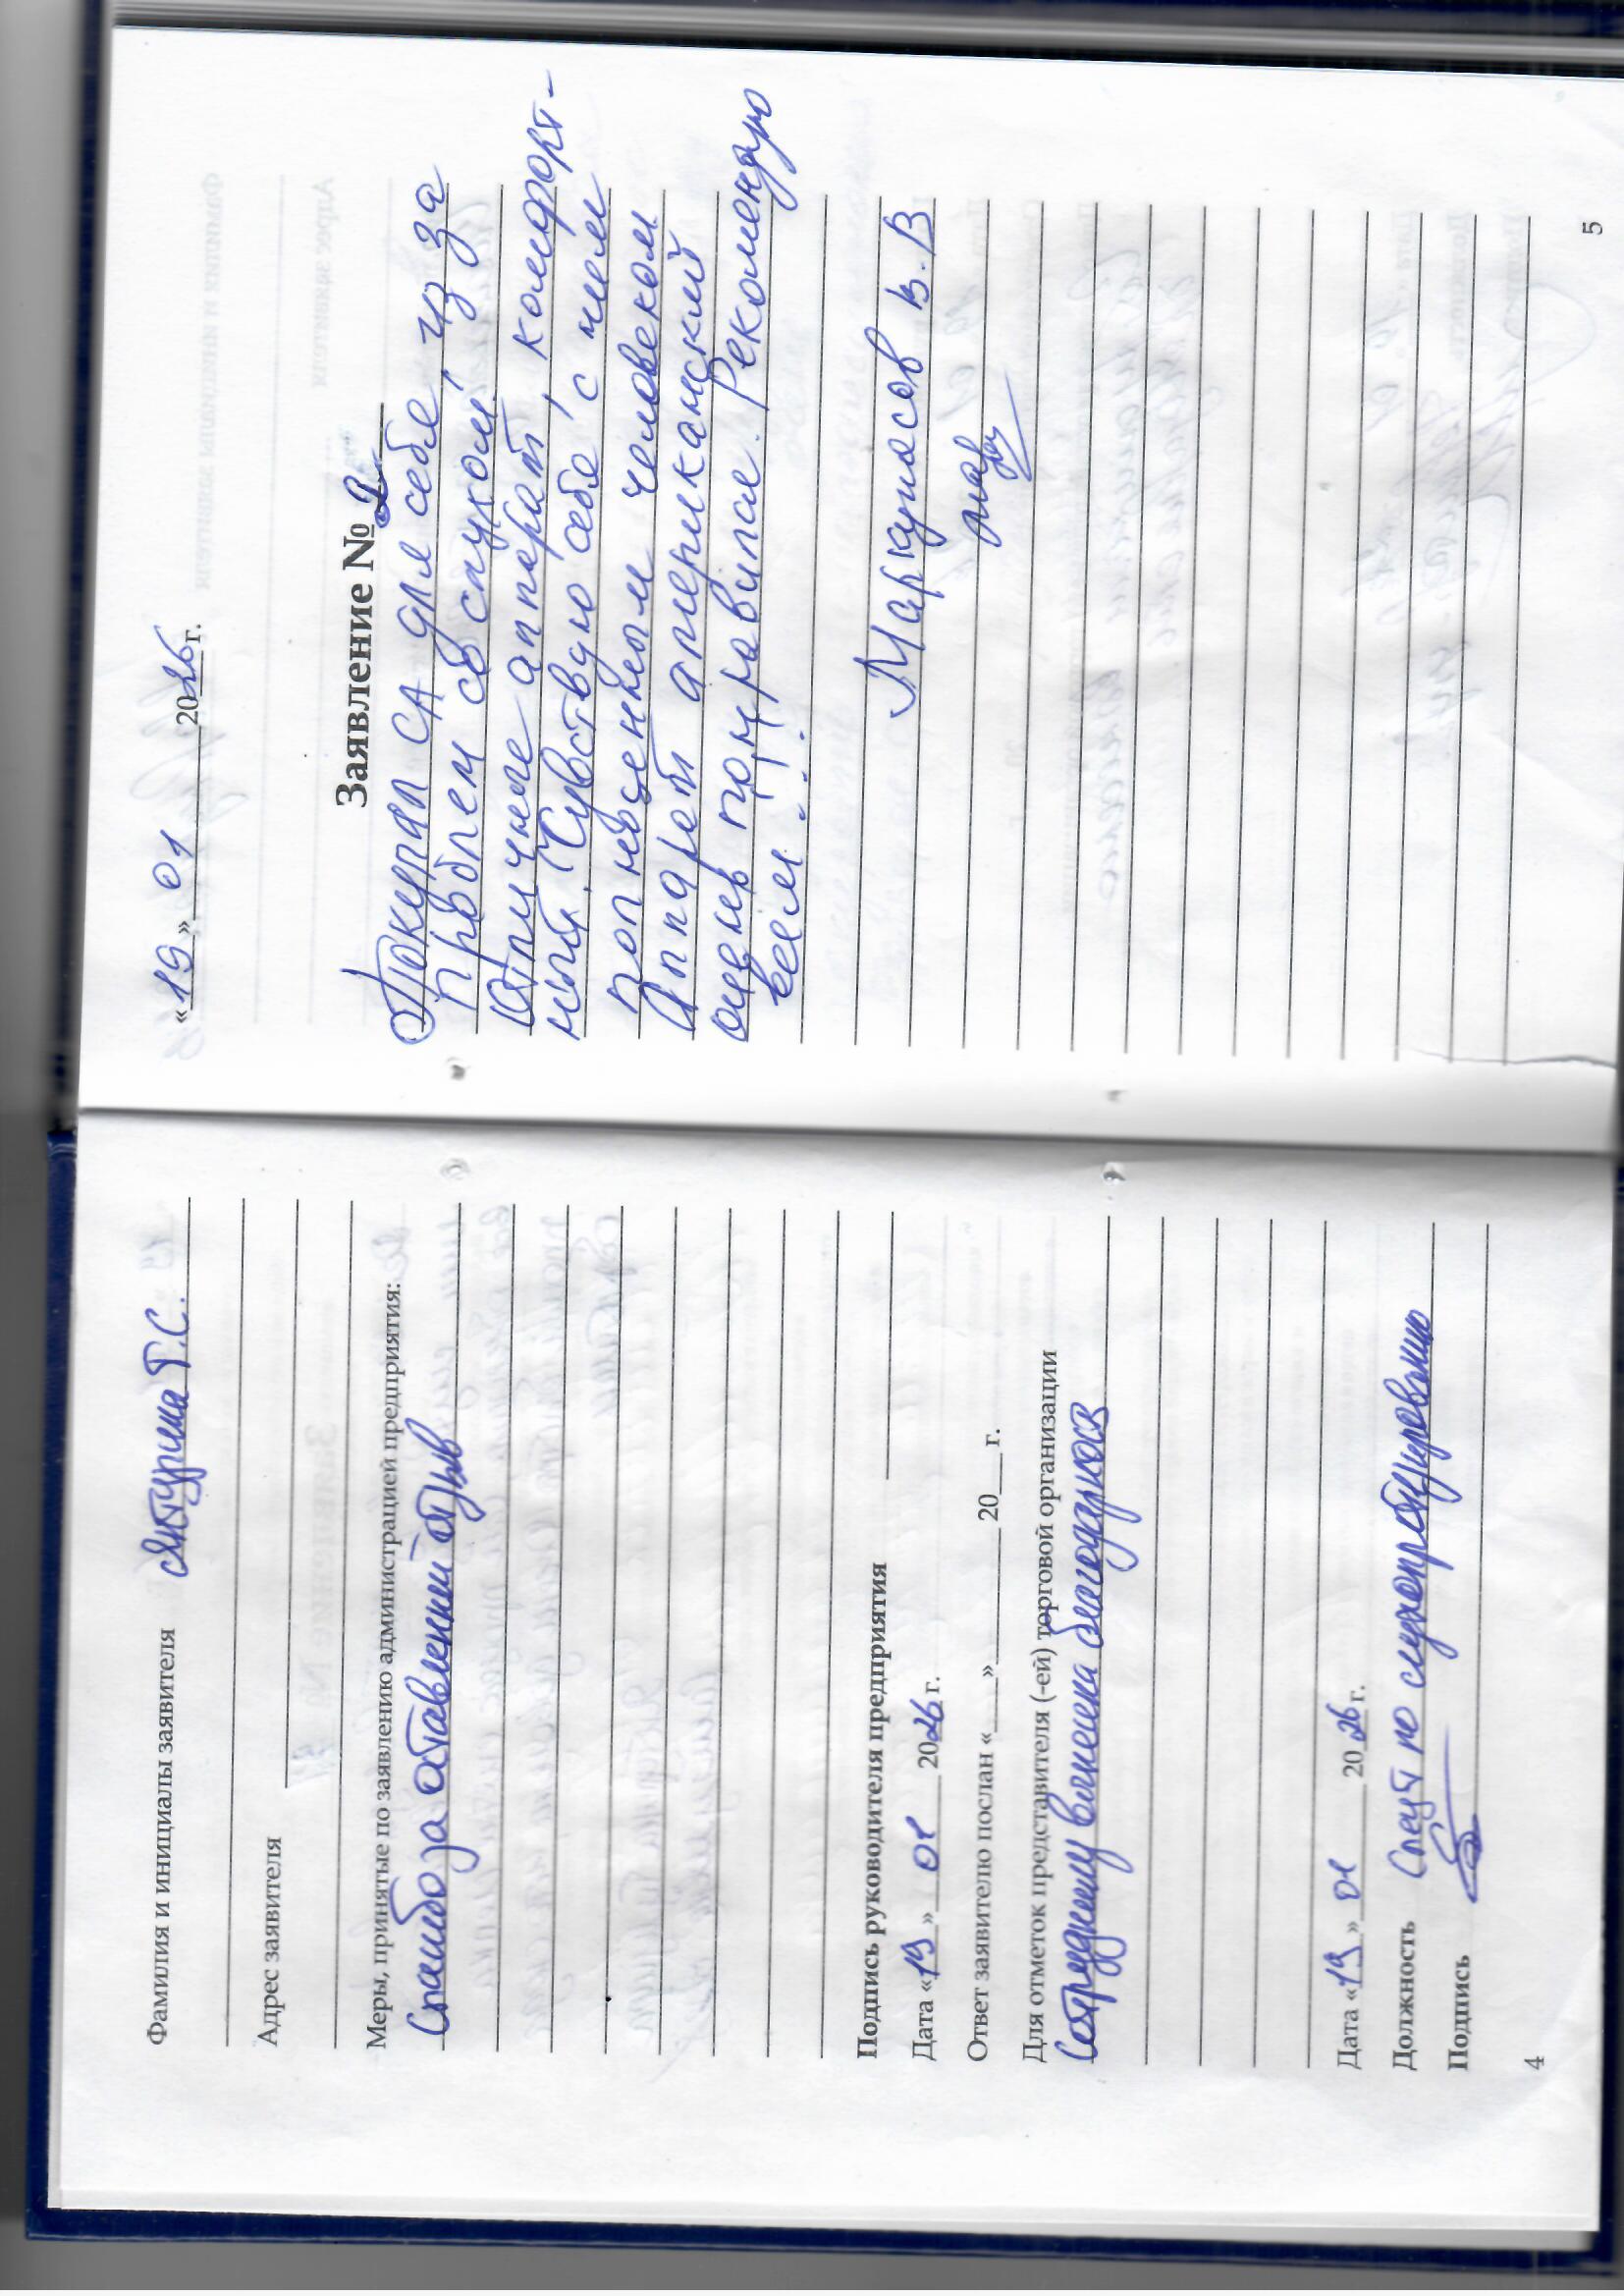 Фамилия и инициалы заявителя Яктурина Г.С.
Адрес заявителя
Меры, принятые по заявлению администрацией предприятия:
Спасибо за оставленный отзыв
Подпись руководителя предприятия
Дата «19» 01 2026 г.
Ответ заявителю послан «___» ______ 20___г.
Для отметок представителя (-ей) торговой организации
Сотруднику вынесена благодарность
Дата «19» 01 2026 г.
Должность Спец по слухопротезированию
Подпись
4
«19» 01 2026 г.
Заявление № 2
Покупал СА для себя, из за
проблем со слухом.
Отличное аппарат, комфорт-
ный. Чувствую себя с ним
полноценным человеком
Аппарат американский
очень понравился. Рекомендую
всем!!!
Маркунасов В.В
5